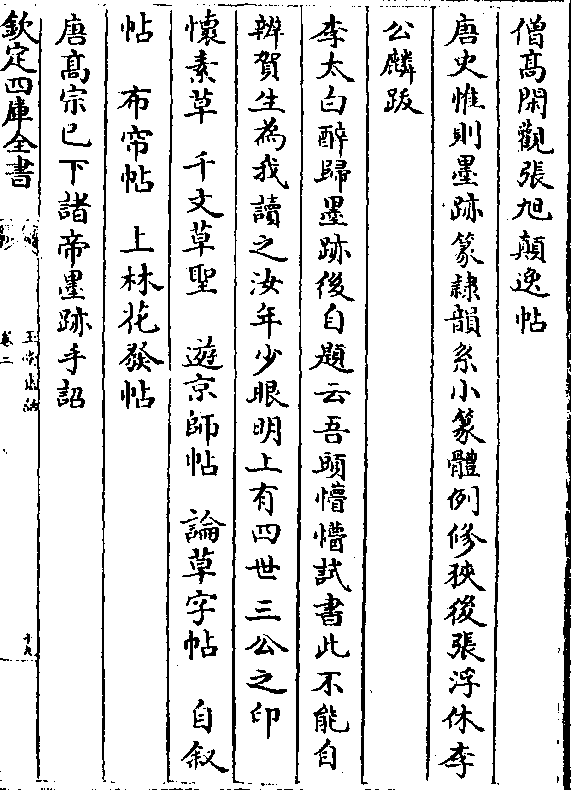 僧髙閑觀張旭顛逸帖
唐史惟則墨跡篆隷韻系小篆體例修狹後張浮休李
公麟跋
李太白醉歸墨跡後自題云吾頭懵懵試書此不能自
辨賀生為我讀之汝年少眼明上有四世三公之印
懷素草 千文草聖 遊京師帖 論草字帖 自叙
帖 布帘帖 上林花發帖
唐髙宗已下諸帝墨跡手詔
欽定四庫全書
卷二